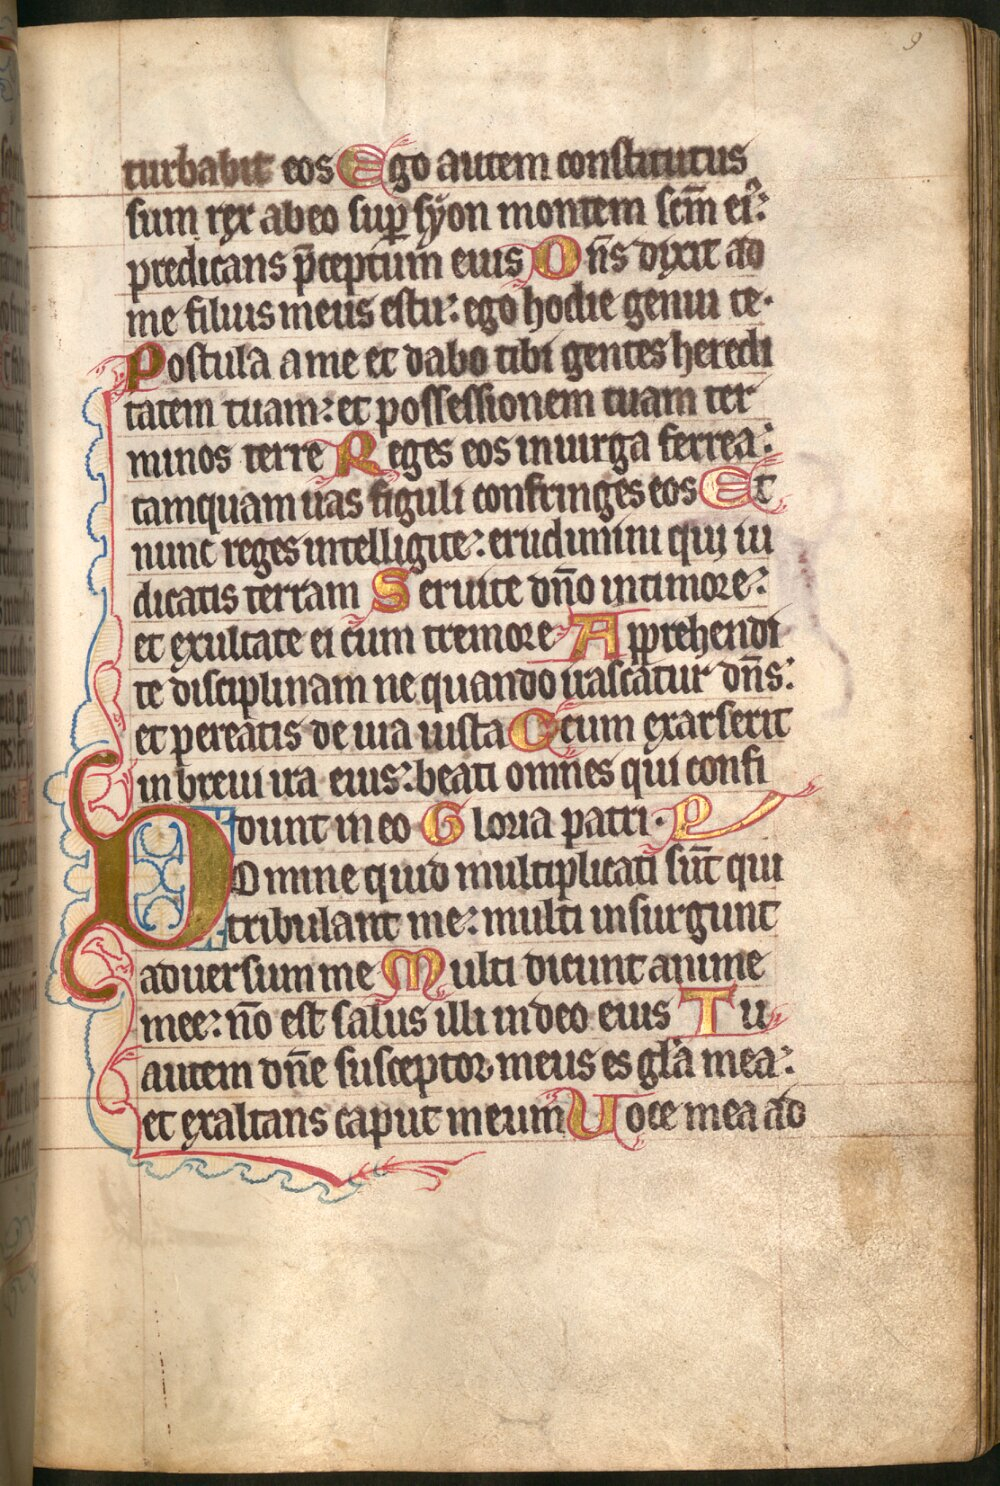 9
turbabit eos Ego autem constitutus
sum rex ab eo sup̱ syon montem sc̄m ei᷒:
predicans p̄ceptum eius Dn̄s dixit ad
me filius meus es tu: ego hodie genui te.
Postula a me et dabo tibi gentes heredi
tatem tuam: et possessionem tuam ter
minos terre Reges eos in uirga ferrea:
tamquam uas figuli confringes eos Et
nunc reges intelligite: erudimini qui iu
dicatis terram Seruite dn̄o in timore:
et exultate ei cum tremore Apprehendi
te disciplinam ne quando irascatur dn̄s:
et pereatis de uia iusta Cum exarserit
in breui ira eius: beati omnes qui confi
dunt in eo Gloria patri. P
Domine quid multiplicati sūt qui
tribulant me: multi insurgunt
aduersum me Multi dicunt anime
mee: nō est salus illi in deo eius Tu
autem dn̄e susceptor meus es gl̄a mea:
et exaltans caput meum Uoce mea ad